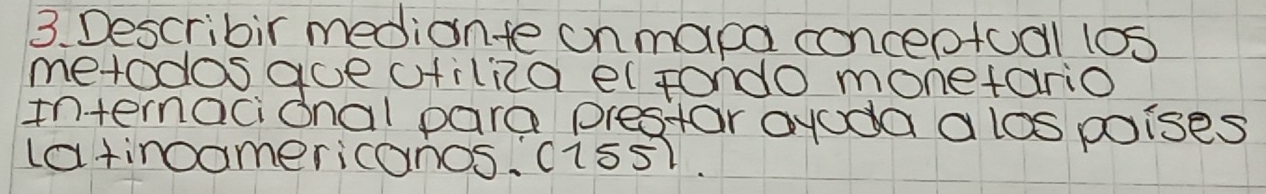 3. Describir mediante un mapa conceptual los
metodos que utiliza el Fondo monetario
Internacional para prestar ayuda a los países
latinoamericanos. (155).